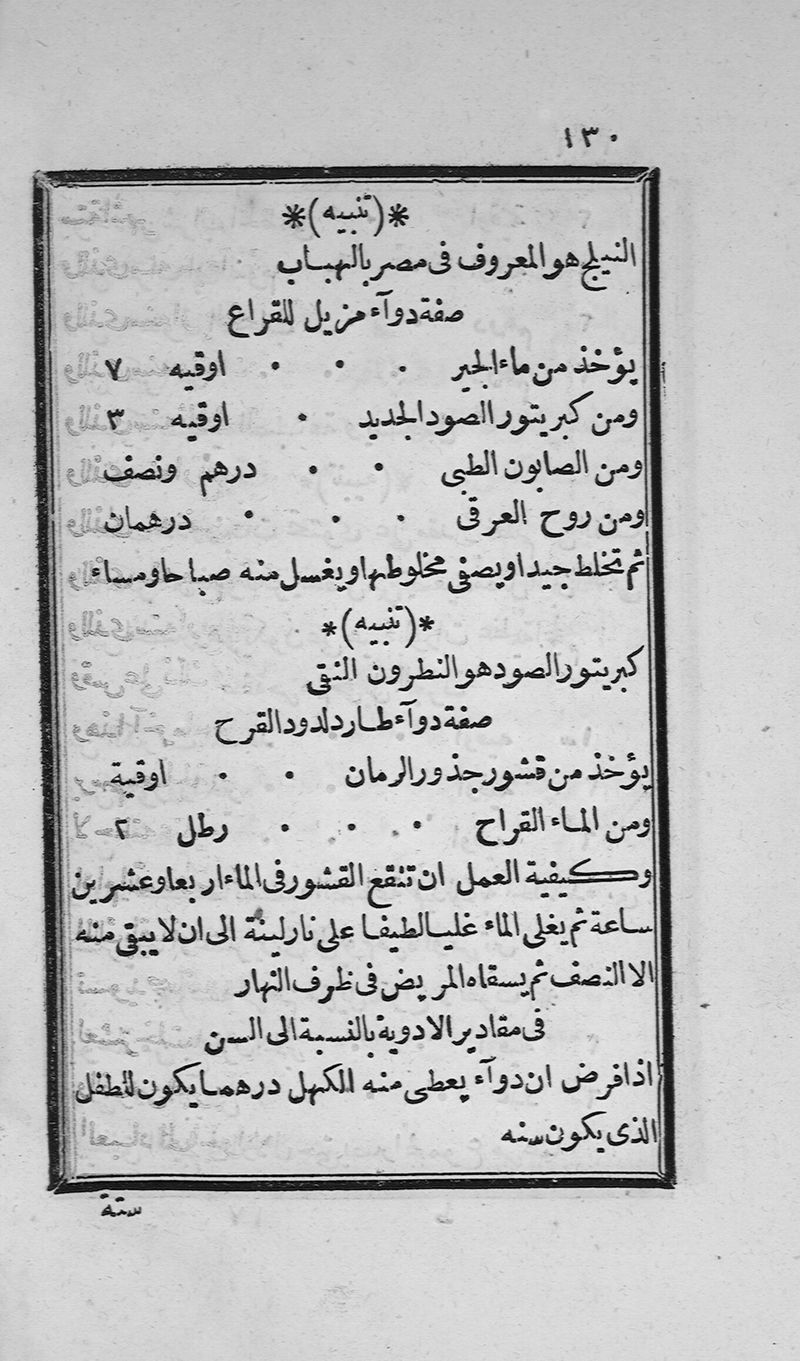 ١٣٠
*(تنبيه)*
النيلج هو المعروف فى مصر بالهباب
صفة دوآء مزيل للقراع
يؤخذ من ماء الجير · · · اوقيه ٧
ومن كبريتور الصود الجديد · اوقيه ٣
ومن الصابون الطبى · · درهم ونصف
ومن روح العرقى · · · درهمان
ثم تخلط جيدا ويصفى مخلوطها ويغسل منه صباحا ومساء
*(تنبيه)*
كبريتور الصود هو النطرون النقى
صفة دوآء طارد لدود القرح
يؤخذ من قشور جذور الرمان · · اوقية
ومن الماء القراح · · · رطل ٢
وكيفية العمل ان تنقع القشور فى الماء اربعا وعشرين
ساعة ثم يغلى الماء غليا لطيفا على نار لينة الى ان لا يبقى منه
الا النصف ثم يسقاه المريض فى ظرف النهار
فى مقادير الادوية بالنسبة الى السن
اذا فرض ان دوآء يعطى منه الكهل درهما يكون للطفل
الذى يكون سنه
ستة